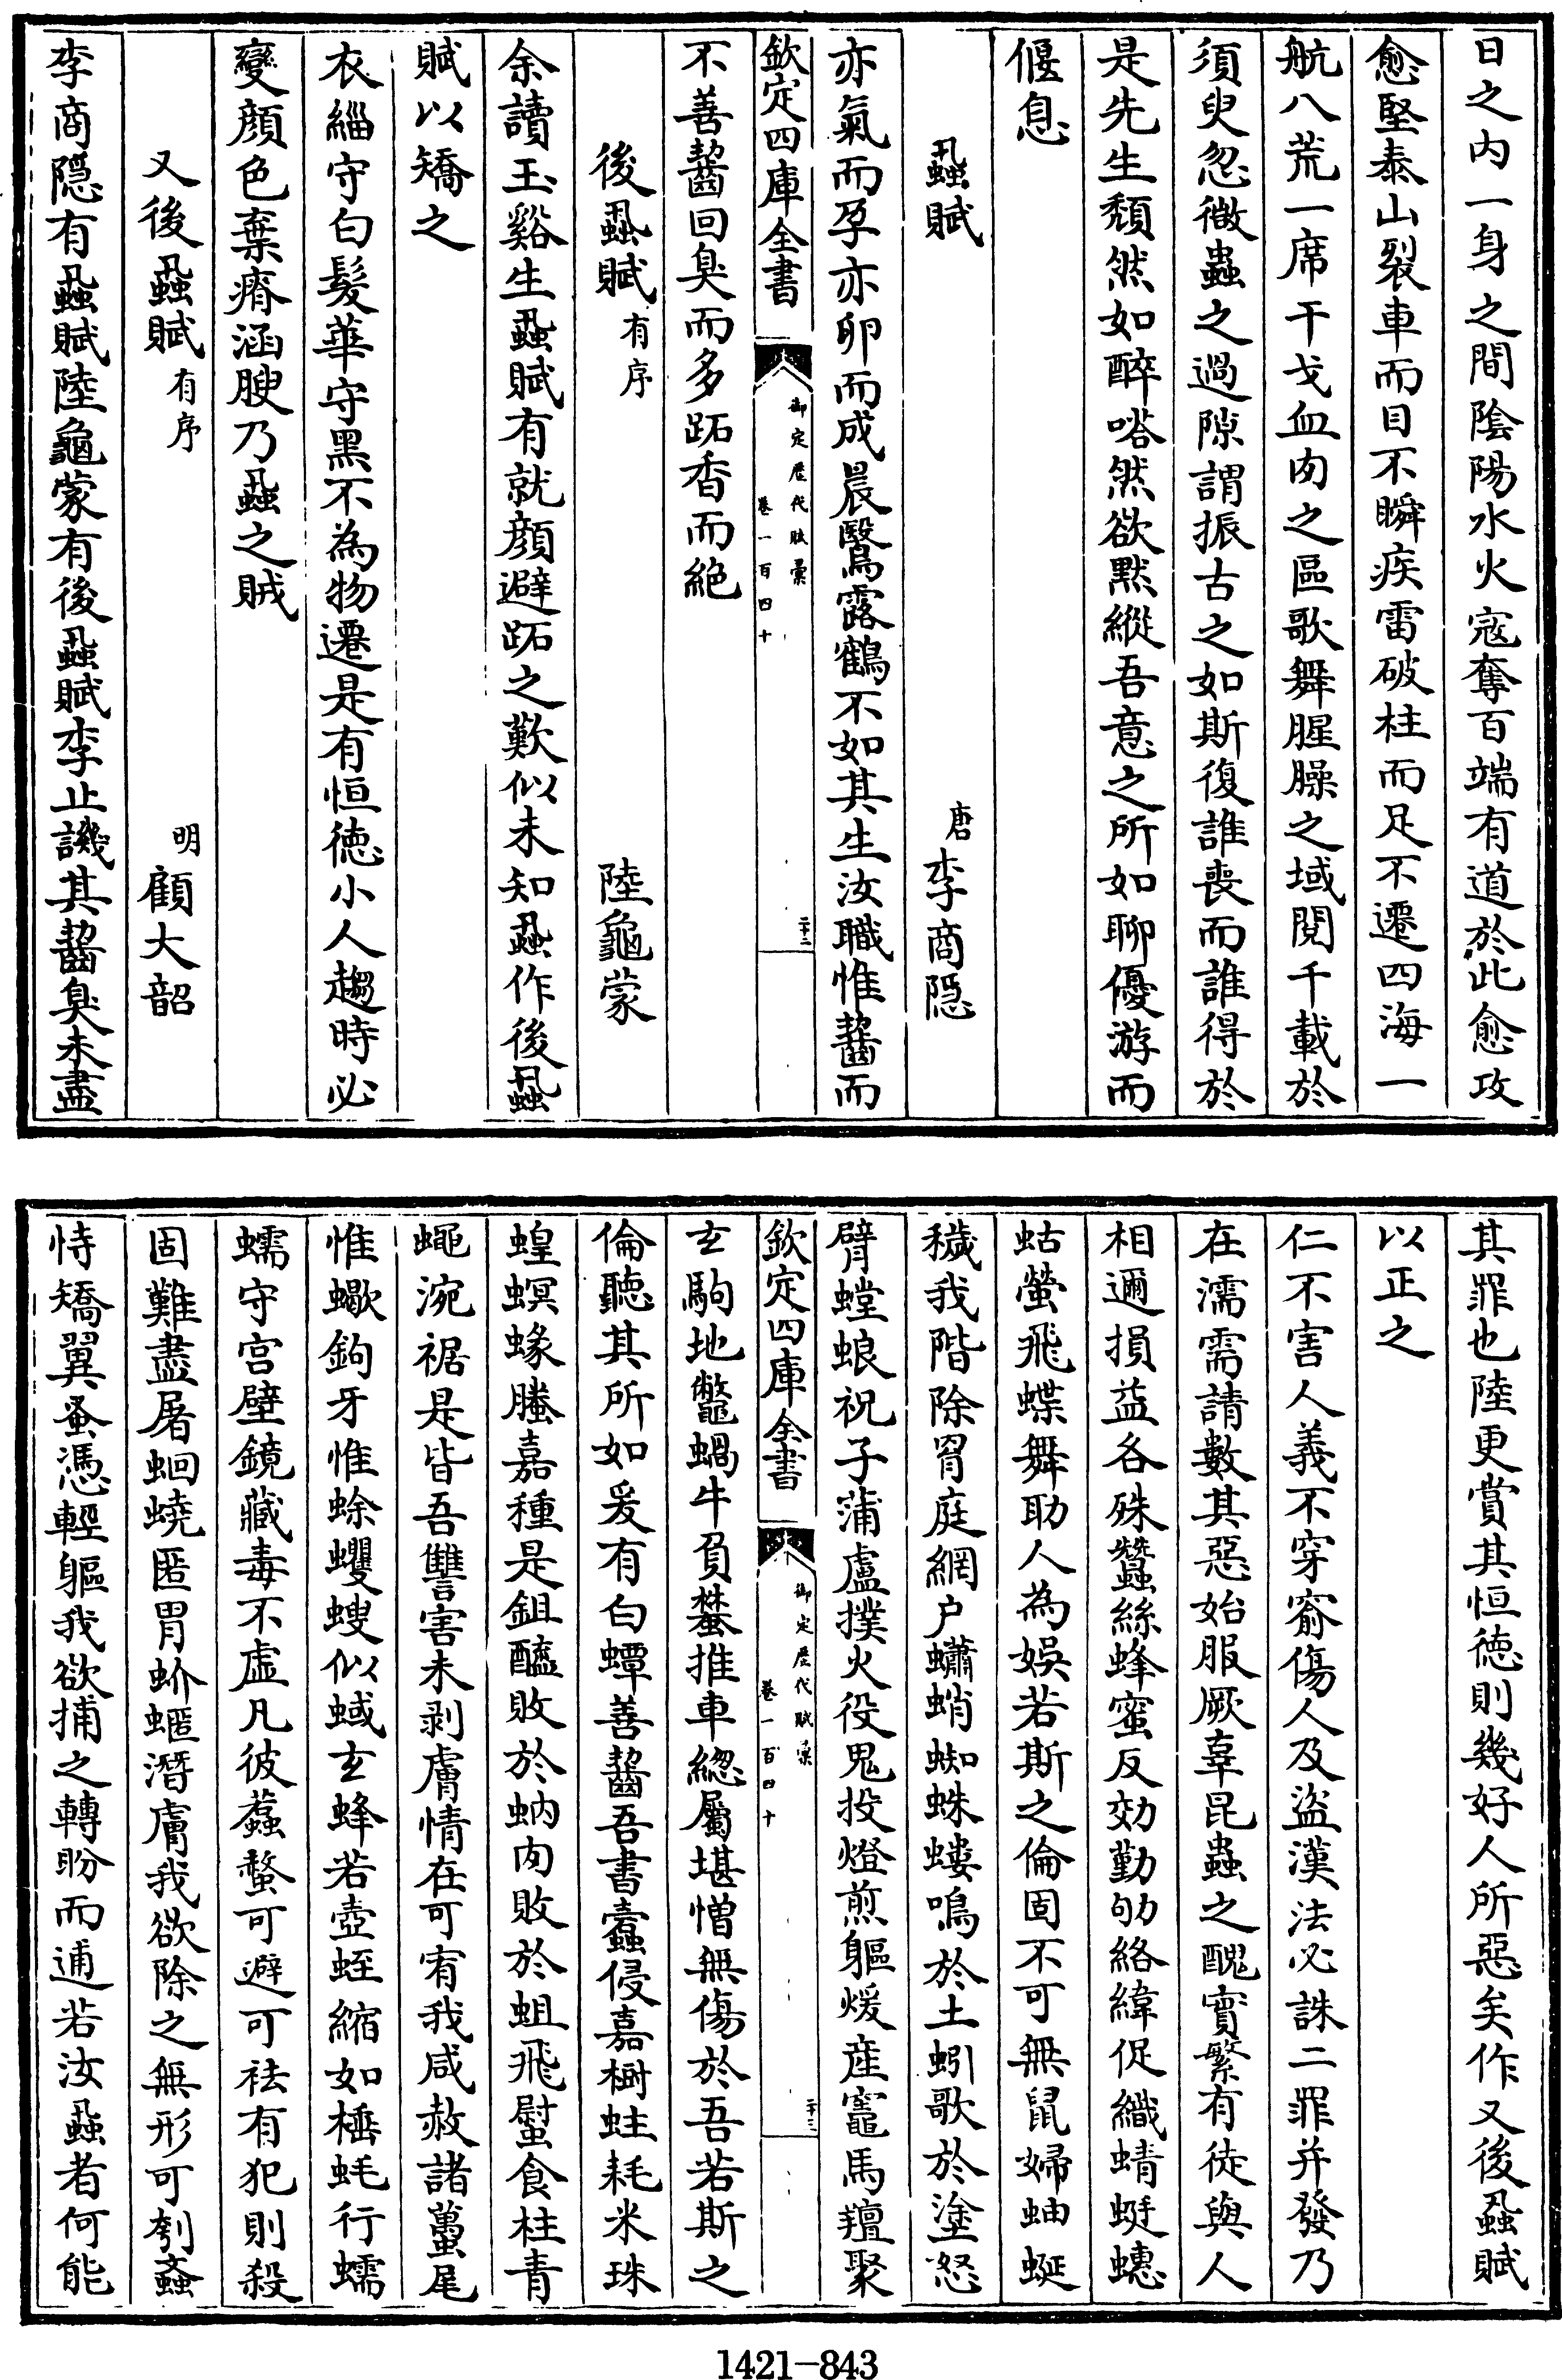 日之内一身之間陰陽水火寇奪百端有道於此愈攻
愈堅泰山裂車而目不瞬疾雷破柱而足不遷四海一
航八荒一席干戈血肉之區歌舞腥臊之域閱千載於
須臾忽微蟲之過隙謂振古之如斯復誰喪而誰得於
是先生頹然如醉嗒然欲默縱吾意之所如聊優游而
偃息
蝨賦 唐李商隱
亦氣而孕亦卵而成晨鷖露鶴不如其生汝職惟齧而
欽定四庫全書 御定歷代賦彙 卷一百四十 二十二
不善齧回臭而多跖香而絶
後蝨賦有序 陸龜蒙
余讀玉谿生蝨賦有就顔避跖之歎似未知蝨作後蝨
賦以矯之
衣緇守白髮華守黑不為物遷是有恒德小人趨時必
變顔色棄瘠涵腴乃蝨之賊
又後蝨賦有序 明顧大韶
李商隱有蝨賦陸龜蒙有後蝨賦李止譏其齧臭未盡
其罪也陸更賞其恒德則幾好人所惡矣作又後蝨賦
以正之
仁不害人義不穿窬傷人及盜漢法必誅二罪并發乃
在濡需請數其惡始服厥辜昆蟲之醜實繁有徒與人
相邇損益各殊蠶絲蜂蜜反効勤劬絡緯促織蜻蜓蟪
蛄螢飛蝶舞助人為娛若斯之倫固不可無鼠婦蚰蜒
穢我階除罥庭網户蠨蛸蜘蛛螻鳴於土蚓歌於塗怒
臂螳蜋祝子蒲盧撲火役鬼投燈煎軀煖産竈馬羶聚
欽定四庫全書 御定歷代賦彙 卷一百四十 二十三
玄駒地鼈蝸牛負蠜推車緫屬堪憎無傷於吾若斯之
倫聽其所如爰有白蟫善齧吾書蠹侵嘉樹蛀耗米珠
蝗螟蟓螣嘉種是鉏醯敗於蚋肉敗於蛆飛蟁食柱青
蠅涴裾是皆吾讐害未剥膚情在可宥我咸赦諸蠆尾
惟蠍鉤牙惟蜍蠼螋似蜮玄蜂若壺蛭縮如棰蚝行蠕
蠕守宫壁鏡藏毒不虚凡彼蠚螫可避可袪有犯則殺
固難盡屠蛔蟯匿胃蚧䘌潛膚我欲除之無形可刳蝱
恃矯翼蚤憑輕軀我欲捕之轉盼而逋若汝蝨者何能
1421-843